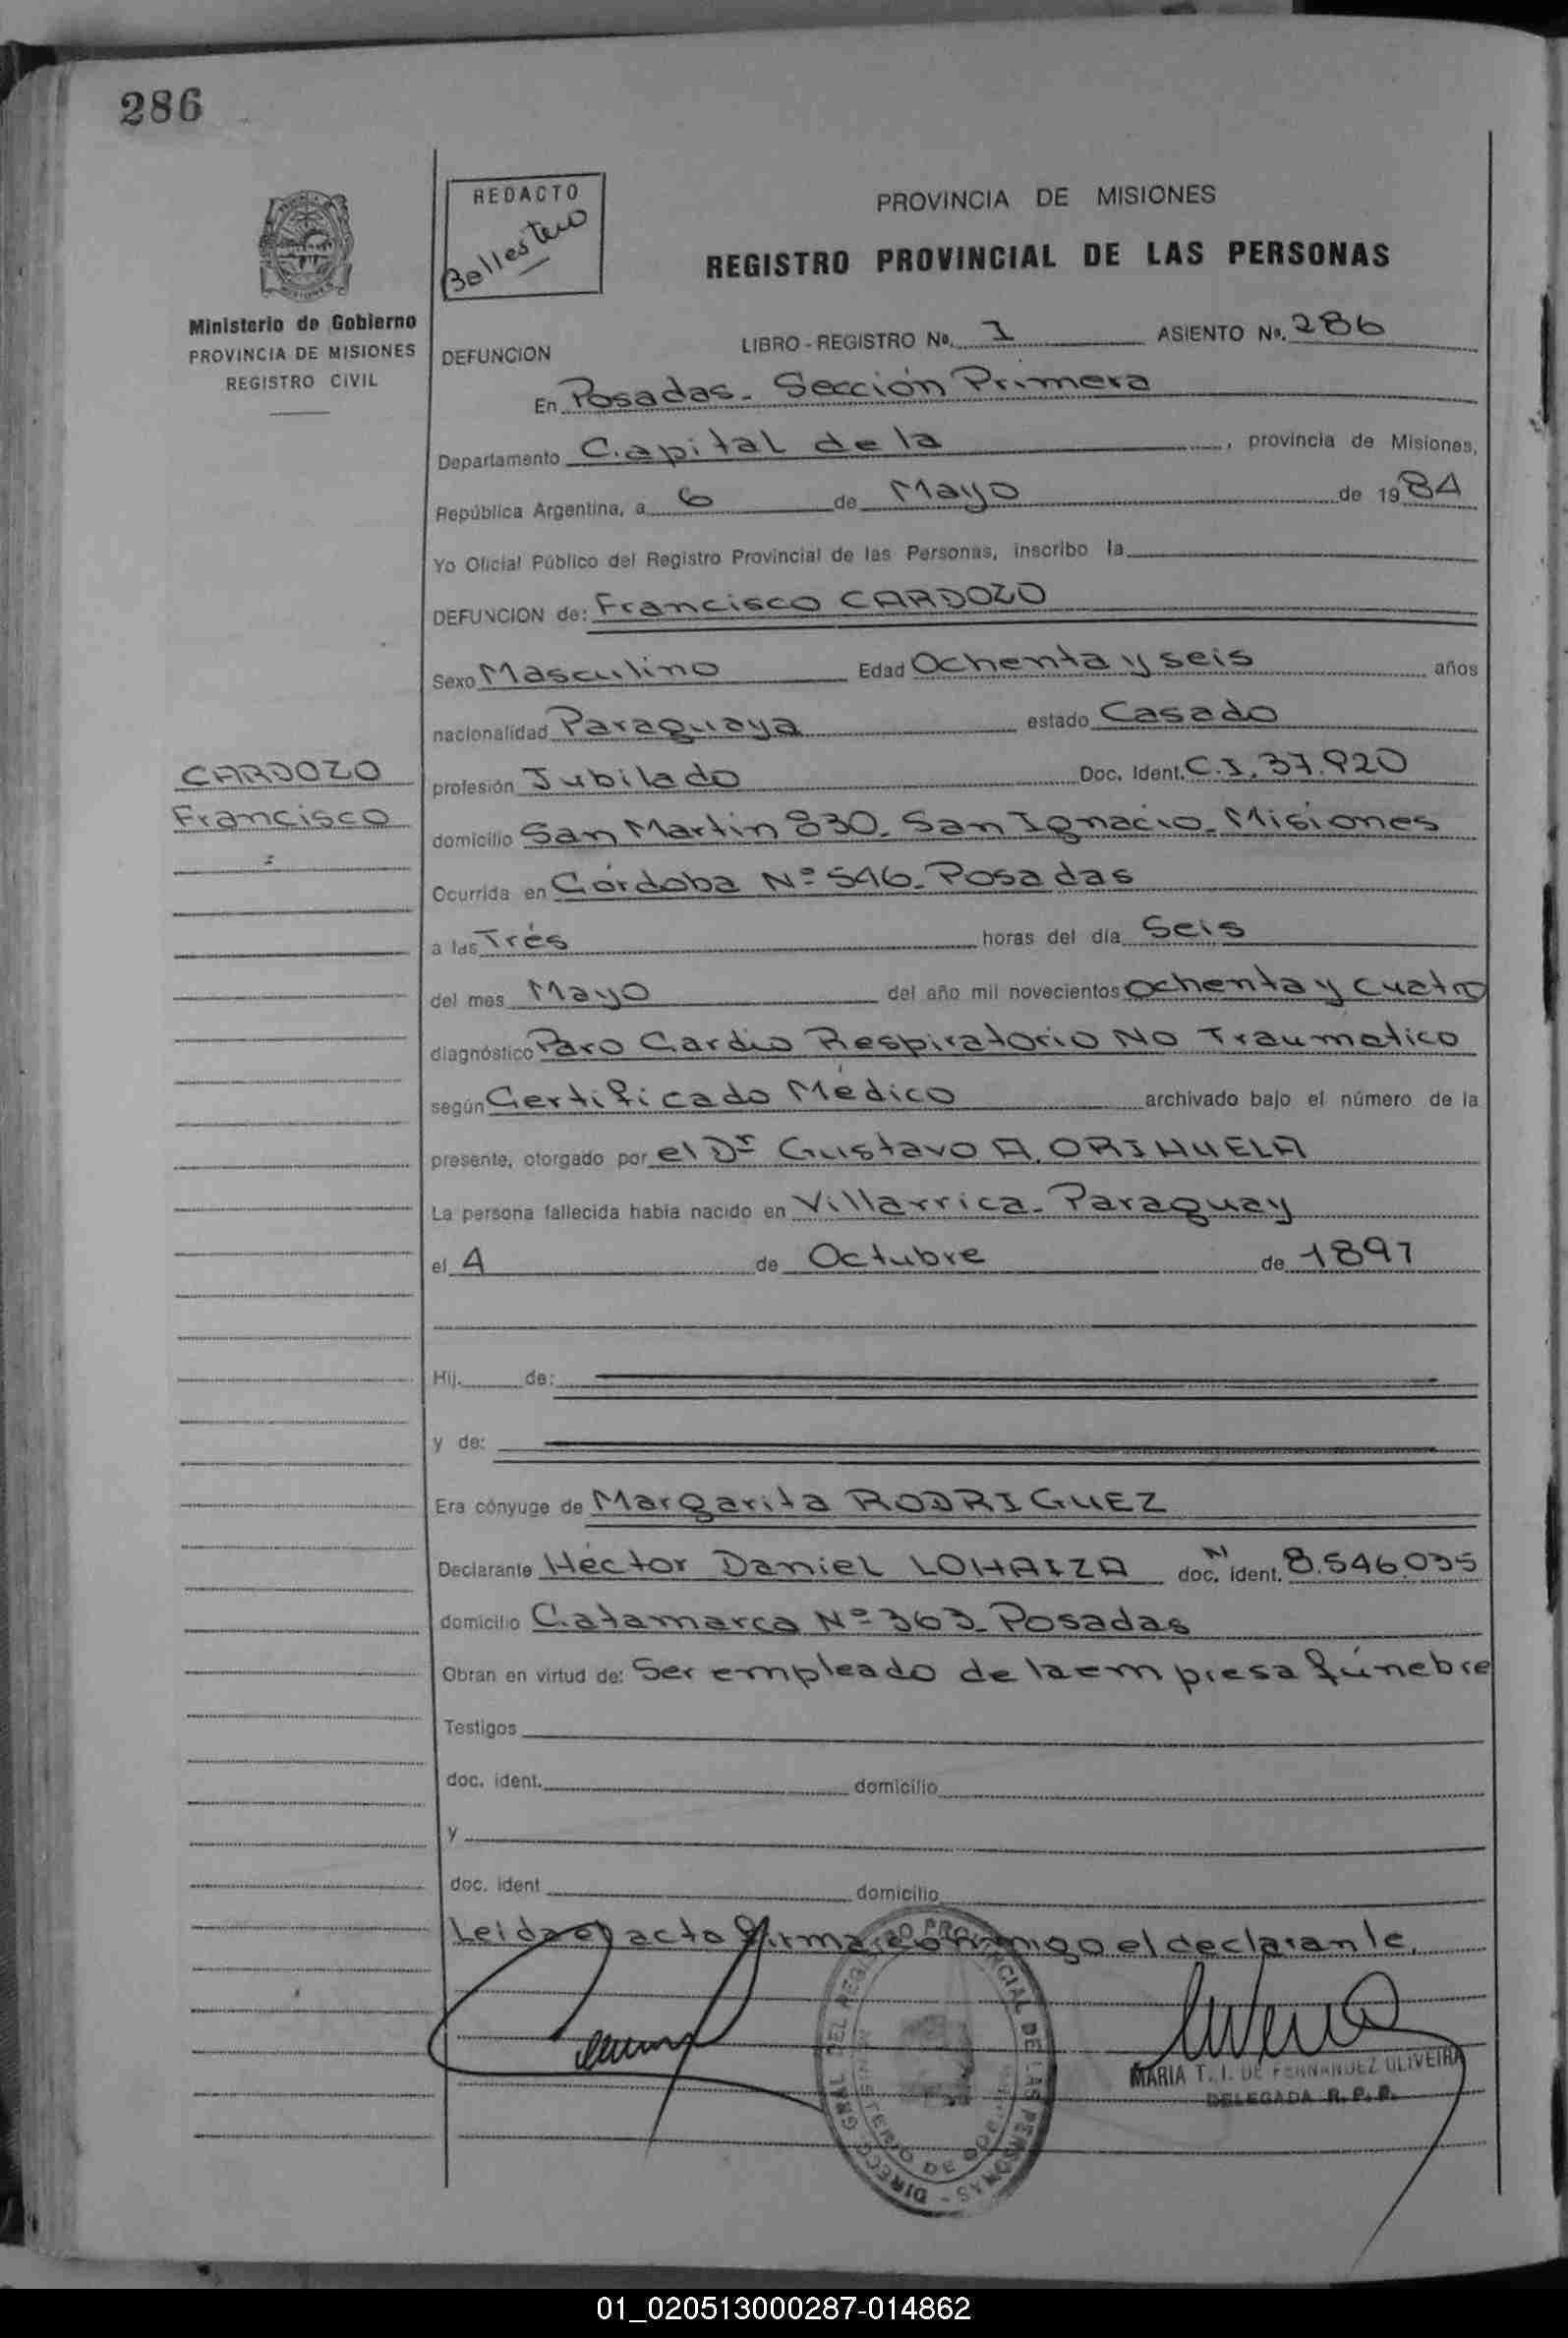 286
REDACTO
Ballestero
PROVINCIA DE MISIONES
REGISTRO PROVINCIAL DE LAS PERSONAS
Ministerio de Gobierno
PROVINCIA DE MISIONES
REGISTRO CIVIL
DEFUNCION
LIBRO - REGISTRO No. 1 ASIENTO No. 286
En Posadas - Sección Primera
Departamento Capital de la, provincia de Misiones,
República Argentina, a 6 de Mayo de 1984
Yo Oficial Público del Registro Provincial de las Personas, inscribo la
DEFUNCION de: Francisco CARDOZO
Sexo Masculino Edad Ochenta y seis años
nacionalidad Paraguaya estado Casado
CARDOZO
Francisco
profesión Jubilado Doc. Ident. C.I. 37.920
domicilio San Martin 830 - San Ignacio - Misiones
Ocurrida en Córdoba Nº 546 - Posadas
a las Trés horas del día Seis
del mes Mayo del año mil novecientos Ochenta y cuatro
diagnóstico Paro Cardio Respiratorio No Traumatico
según Certificado Médico archivado bajo el número de la
presente, otorgado por el Dr Gustavo A. ORIHUELA
La persona fallecida había nacido en Villarrica - Paraguay
el 4 de Octubre de 1897
Hij. de:
y de:
Era cónyuge de Margarita RODRIGUEZ
Declarante Héctor Daniel LOHAIZA doc. N ident. 8.546.035
domicilio Catamarca Nº 363 - Posadas
Obran en virtud de: Ser empleado de la empresa fúnebre
Testigos
doc. ident. domicilio
y
doc. ident domicilio
Leida el acta firma conmigo el declarante.
DIRECC. GRAL. DEL REGISTRO PROVINCIAL DE LAS PERSONAS -
MINISTERIO DE GOB.
MARIA T. I. DE FERNANDEZ OLIVEIRA
DELEGADA R. P. P.
01_020513000287-014862